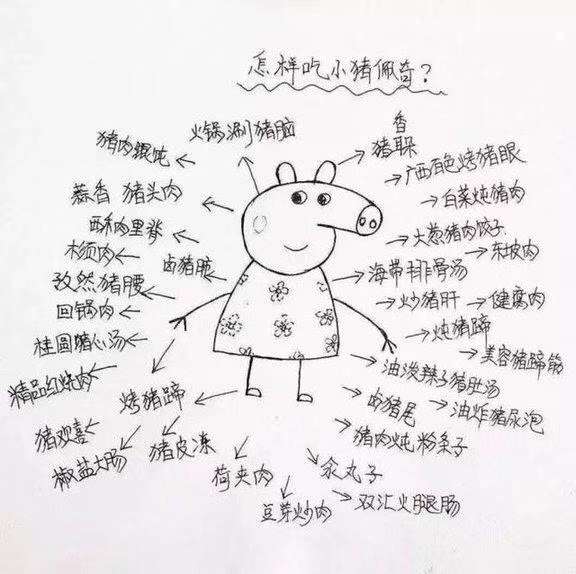 怎样吃小猪佩奇?
火锅涮猪脑
香
猪耳
猪肉馄饨
广西百色烤猪眼
蒜香 猪头肉
白菜炖猪肉
西和肉里脊
大葱猪肉饺子
东坡肉
木须肉
卤猪脏
海带排骨汤
孜然猪腰
炒猪肝
健腐肉
回锅肉
炖猪蹄
桂圆猪心汤
美容猪蹄筋
油泼辣子猪肚汤
精品红烧肉
烤猪蹄
卤猪尾
油炸猪尿泡
猪欢喜
猪皮冻
猪肉炖粉条子
椒盐大肠
荷夹肉
汆丸子
豆芽炒肉
双汇火腿肠